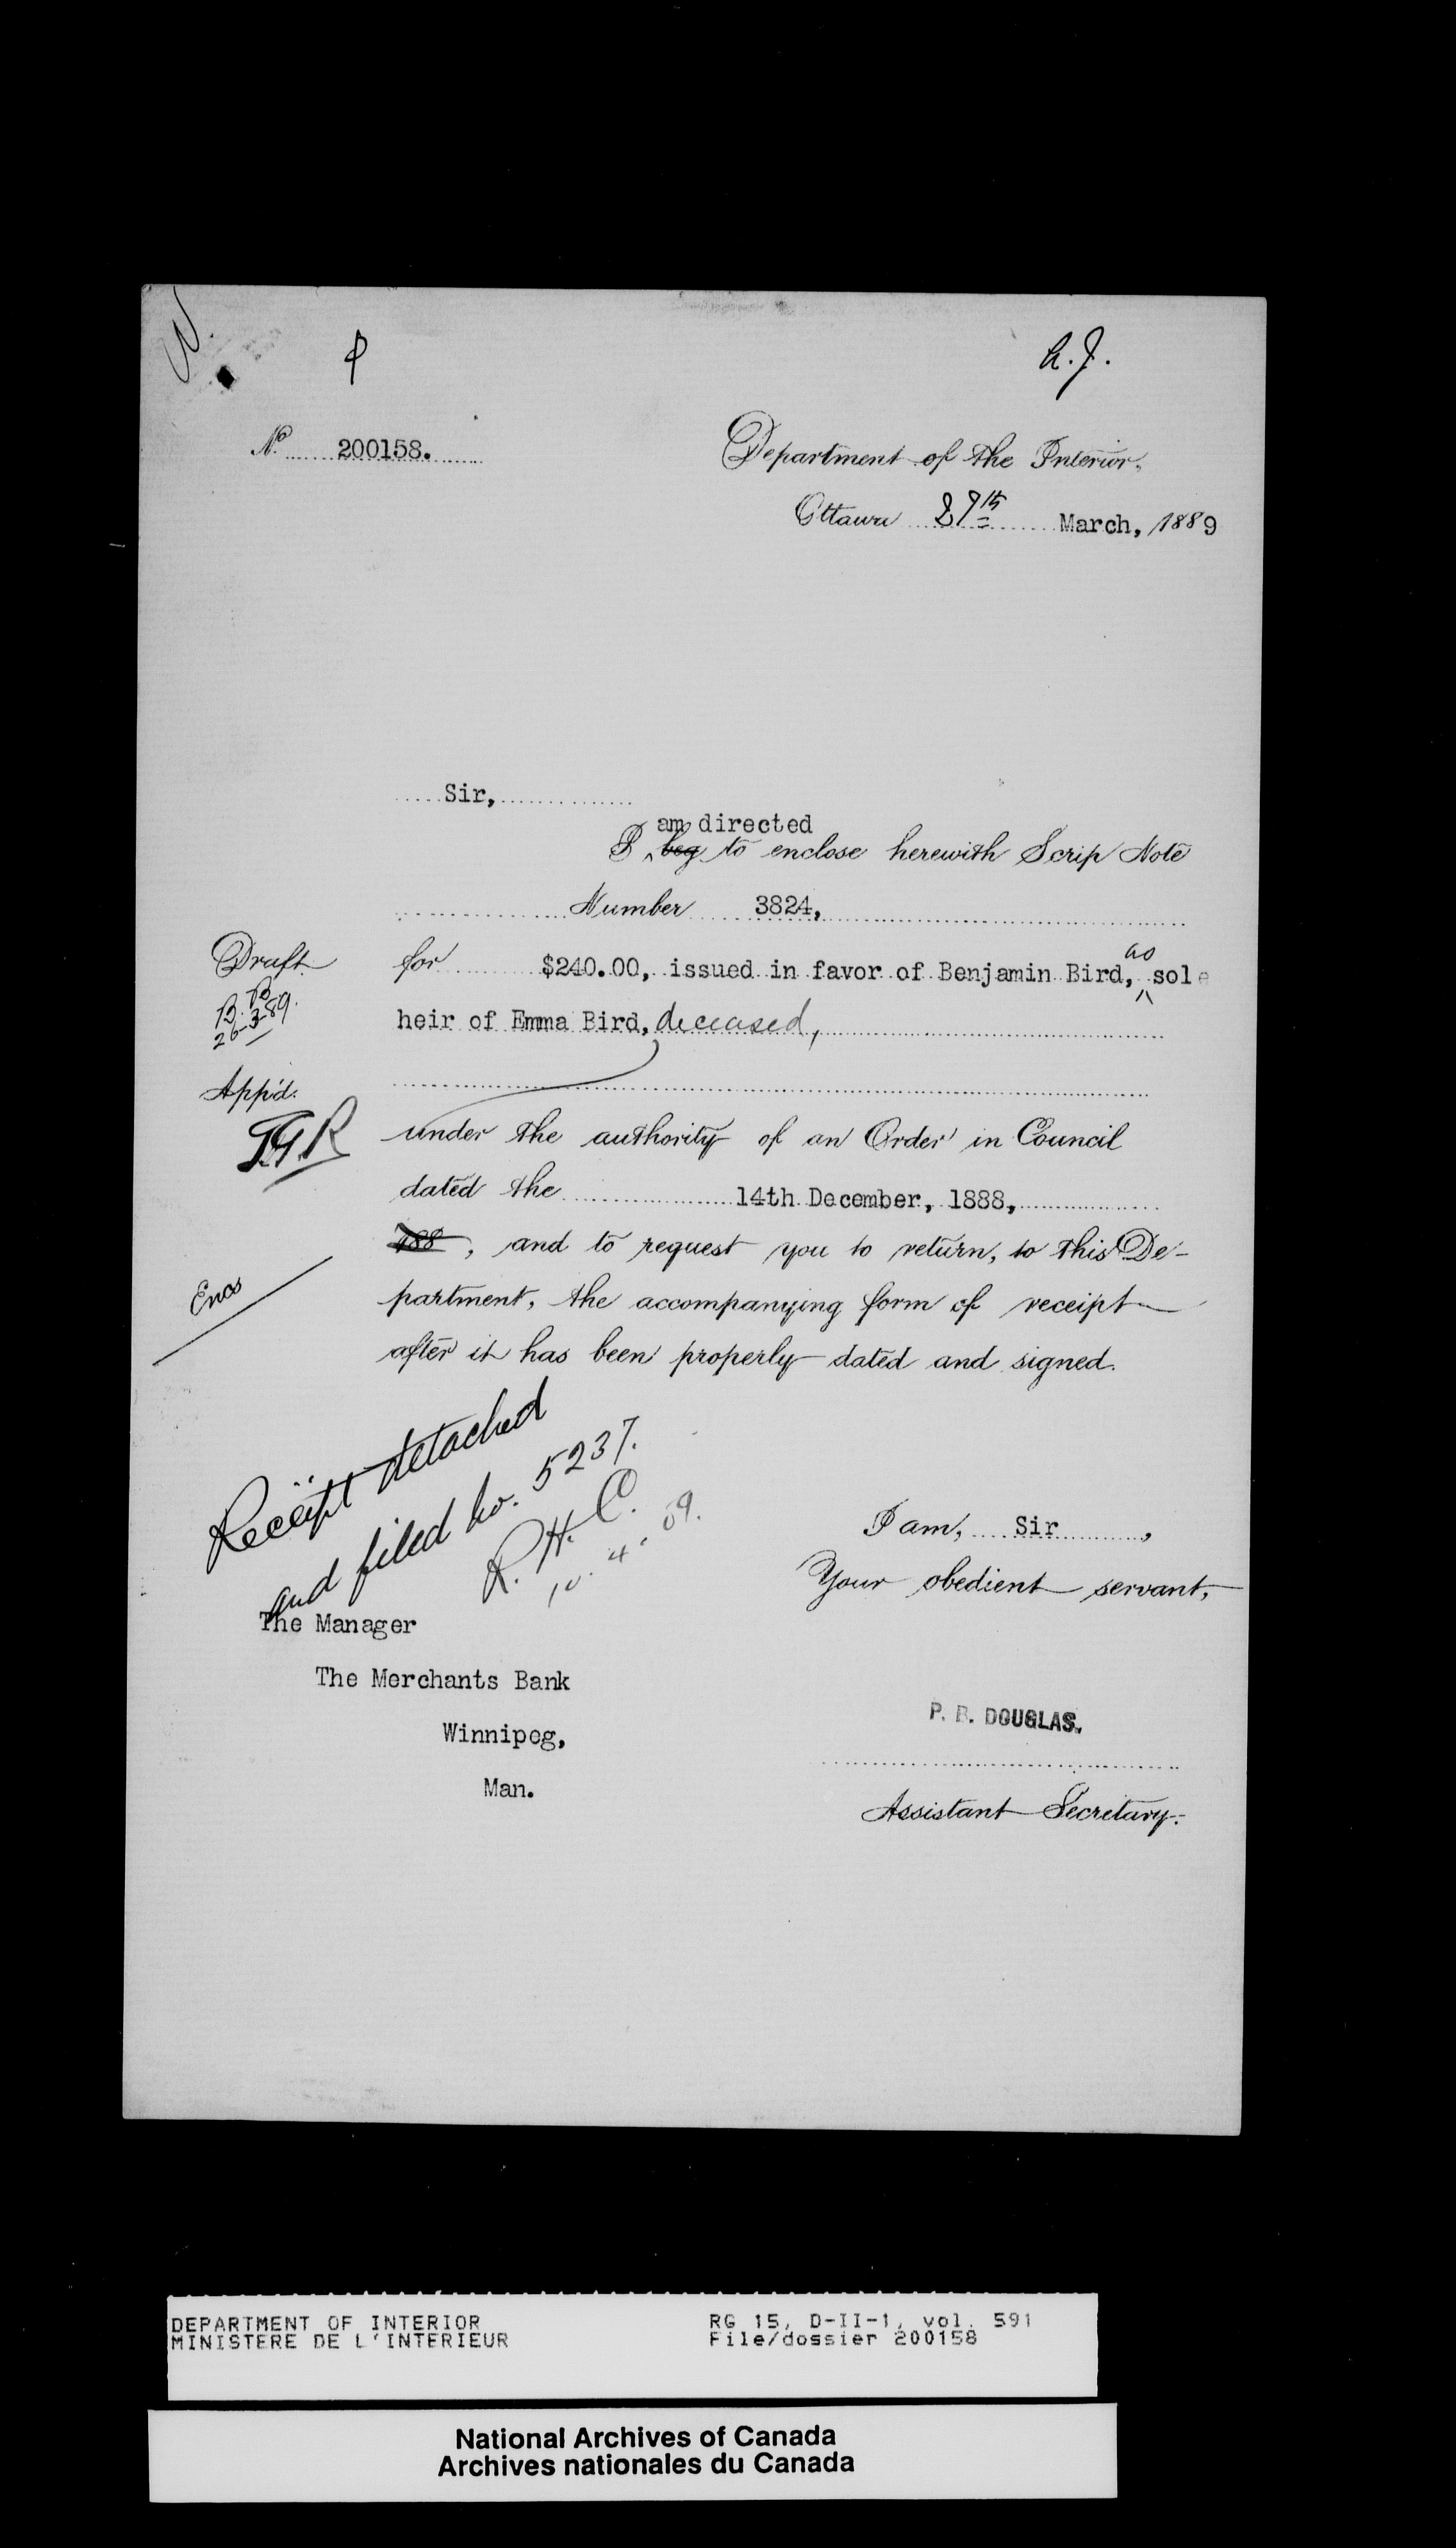 N.
P
A.J.
No. 200158.
Department of the Interior,
Ottawa 27th March, 1889
Sir,
am directed
I beg to enclose herewith Scrip Note
Number 3824,
as
for $240.00, issued in favor of Benjamin Bird, sole
heir of Emma Bird, deceased,
under the authority of an Order in Council
dated the 14th December, 1888,
188 , and to request you to return, to this De-
partment, the accompanying form of receipt
after it has been properly dated and signed.
Draft
B.B.
26-3-89.
App'd.
Encs
Receipt detached
and filed no. 5237.
R. H. C.
10. 4. 89.
I am, Sir,
Your obedient servant,
The Manager
The Merchants Bank
Winnipeg,
Man.
P. B. DOUGLAS.
Assistant Secretary.
DEPARTMENT OF INTERIOR
MINISTERE DE L'INTERIEUR
RG 15, D-II-1, vol. 591
File/dossier 200158
National Archives of Canada
Archives nationales du Canada